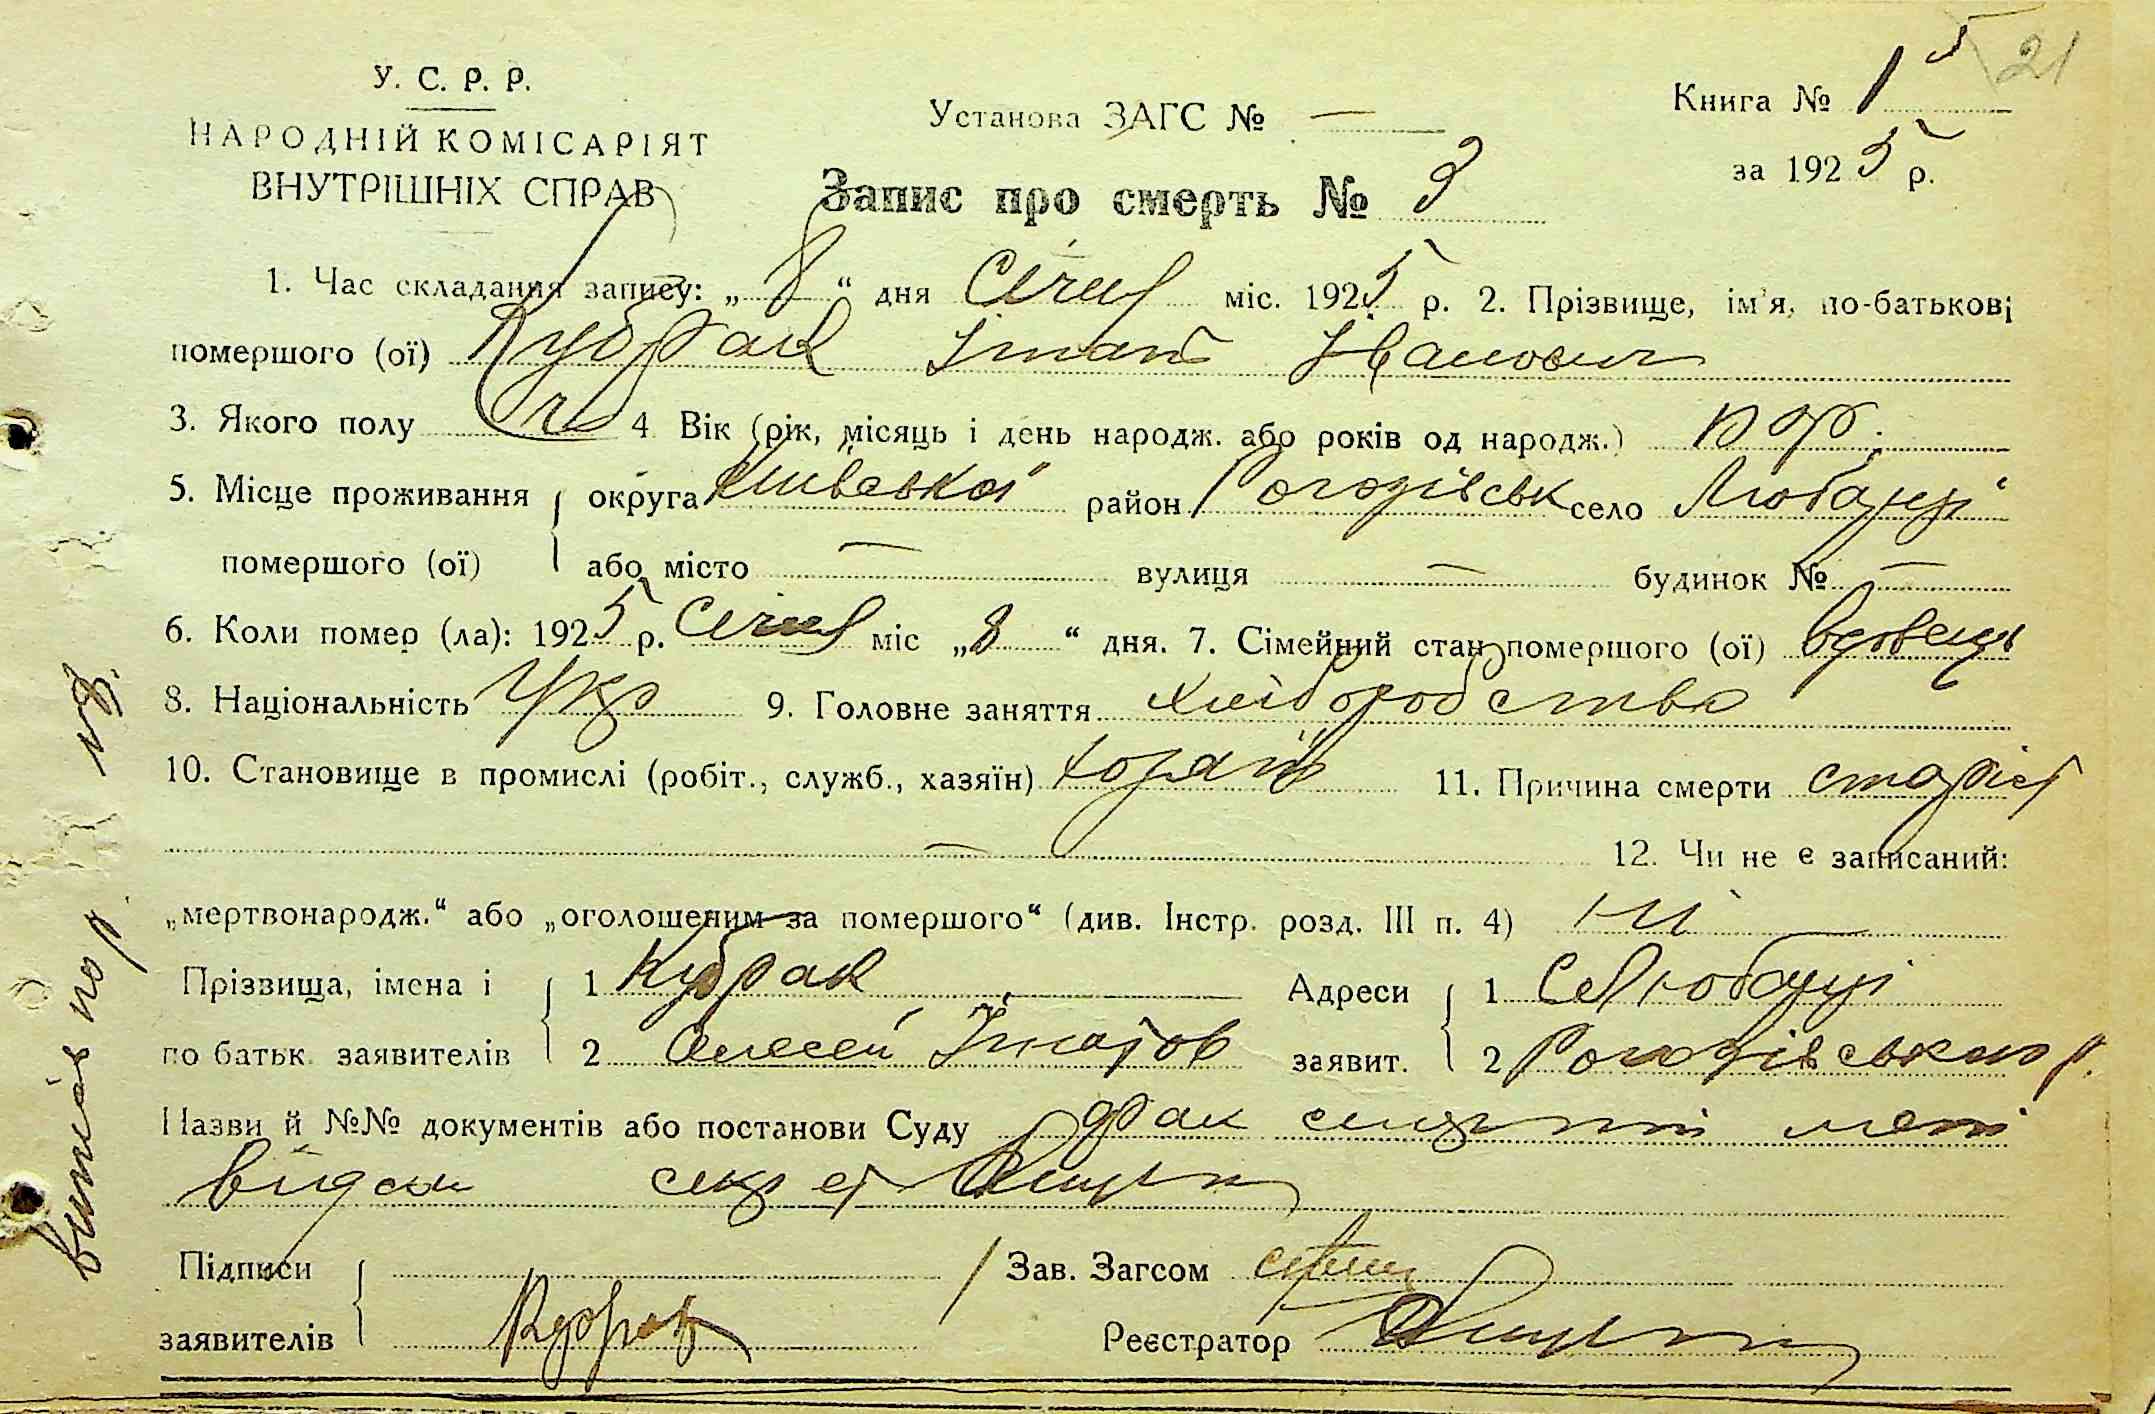 21
У. С. Р. Р.
НАРОДНІЙ КОМІСАРІЯТ
ВНУТРІШНІХ СПРАВ
Установа ЗАГС № —
Книга № 1
за 1925 р.
Запис про смерть № 3
1. Час складання запису: „8“ дня Січня міс. 1925 р. 2. Прізвище, ім'я, по-батькові
помершого (ої) Кубрак Ігнат Іванович
3. Якого полу ч 4 Вік (рік, місяць і день народж. або років од народж.)
5. Місце проживання округа Київської район Рогозівськ село Любарці
помершого (ої) або місто — вулиця — будинок № —
6. Коли помер (ла): 1925 р. Січня міс „8“ дня. 7. Сімейний стан помершого (ої) вдовець
8. Національність Укр 9. Головне заняття хліборобство
10. Становище в промислі (робіт., служб., хазяїн) хазяїн 11. Причина смерти старіст
— 12. Чи не є записаний:
„мертвонародж.“ або „оголошеним за помершого“ (див. Інстр. розд. III п. 4) ні
Прізвища, імена і 1 Кубрак Адреси 1 С Любарці
по батьк. заявителів 2 Олексей Ігнатов заявит. 2 Рогозівського р.
Назви й №№ документів або постанови Суду
Підписи Зав. Загсом
заявителів Кубрак Реєстратор